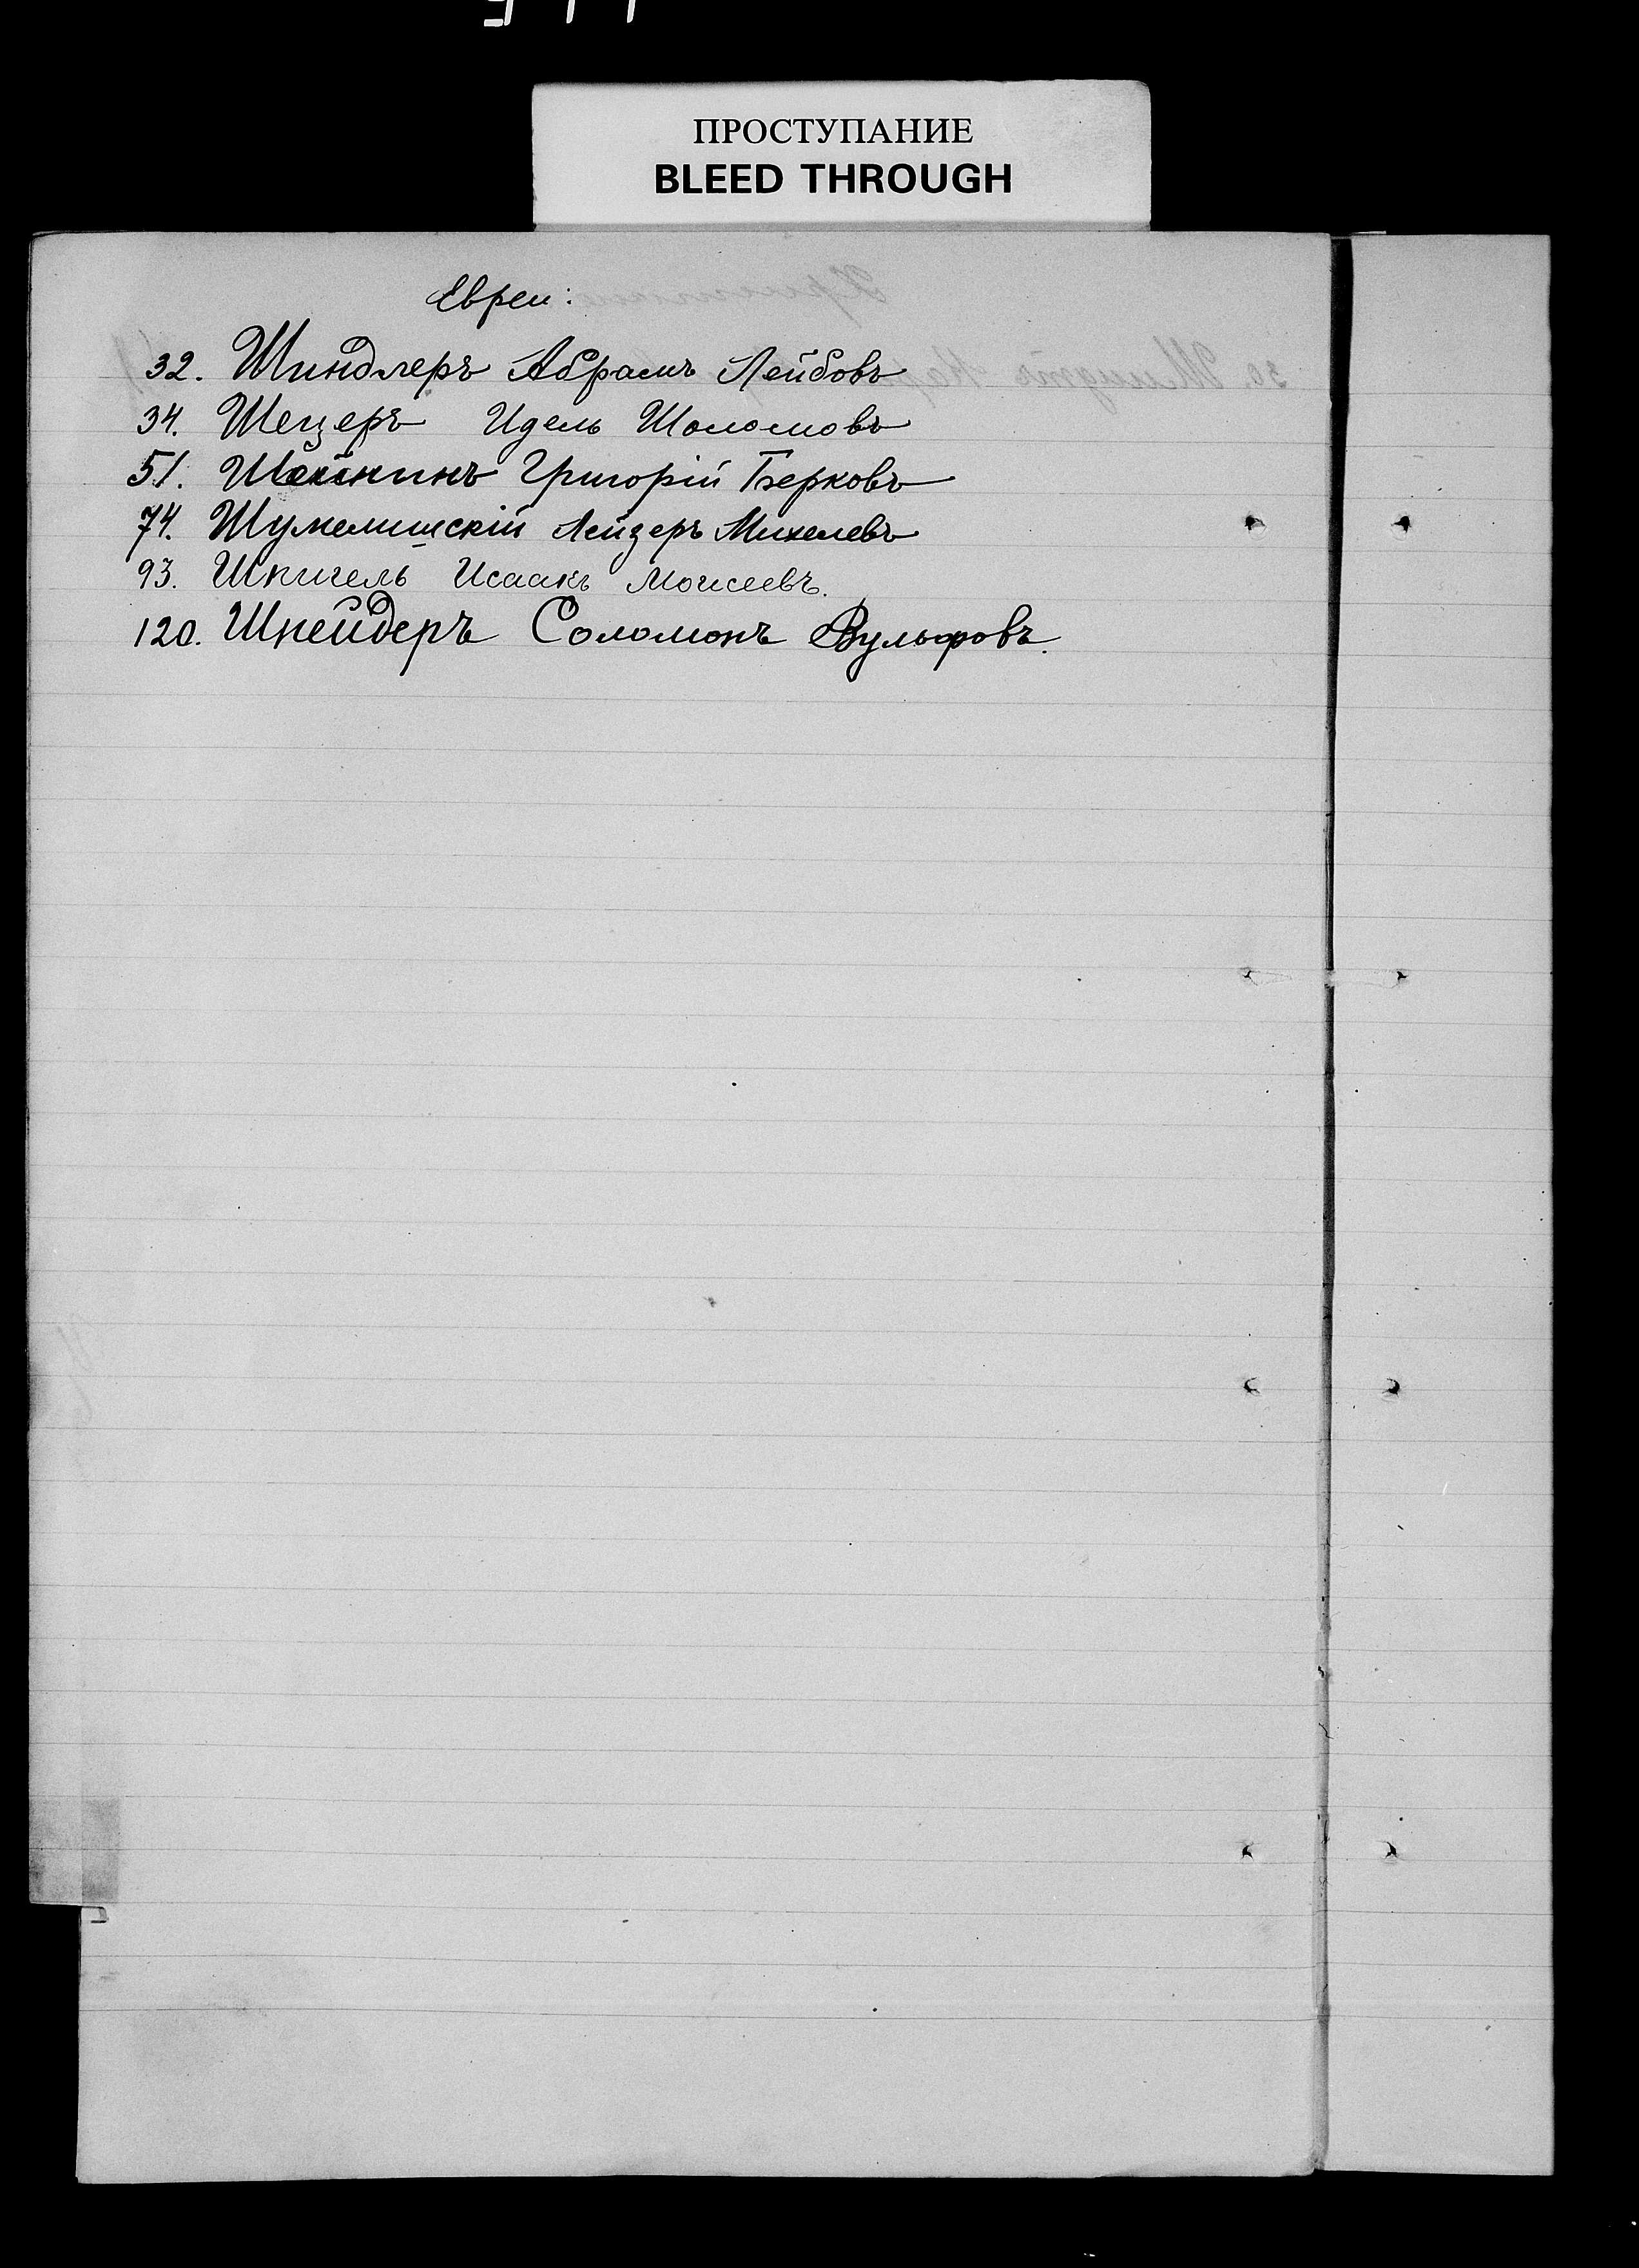 ПРОСТУПАНИЕ
BLEED THROUGH
Евреи:
32. Шиндлеръ Абрамъ Лейбовъ
34. Шецеръ Идель Шоломовъ
51. Шейнинъ Григорій Берковъ
74. Шумелишскій Лейзеръ Михелевъ
93. Шпигель Исаакъ Моисеевъ.
120. Шнейдеръ Соломонъ Вульфовъ.